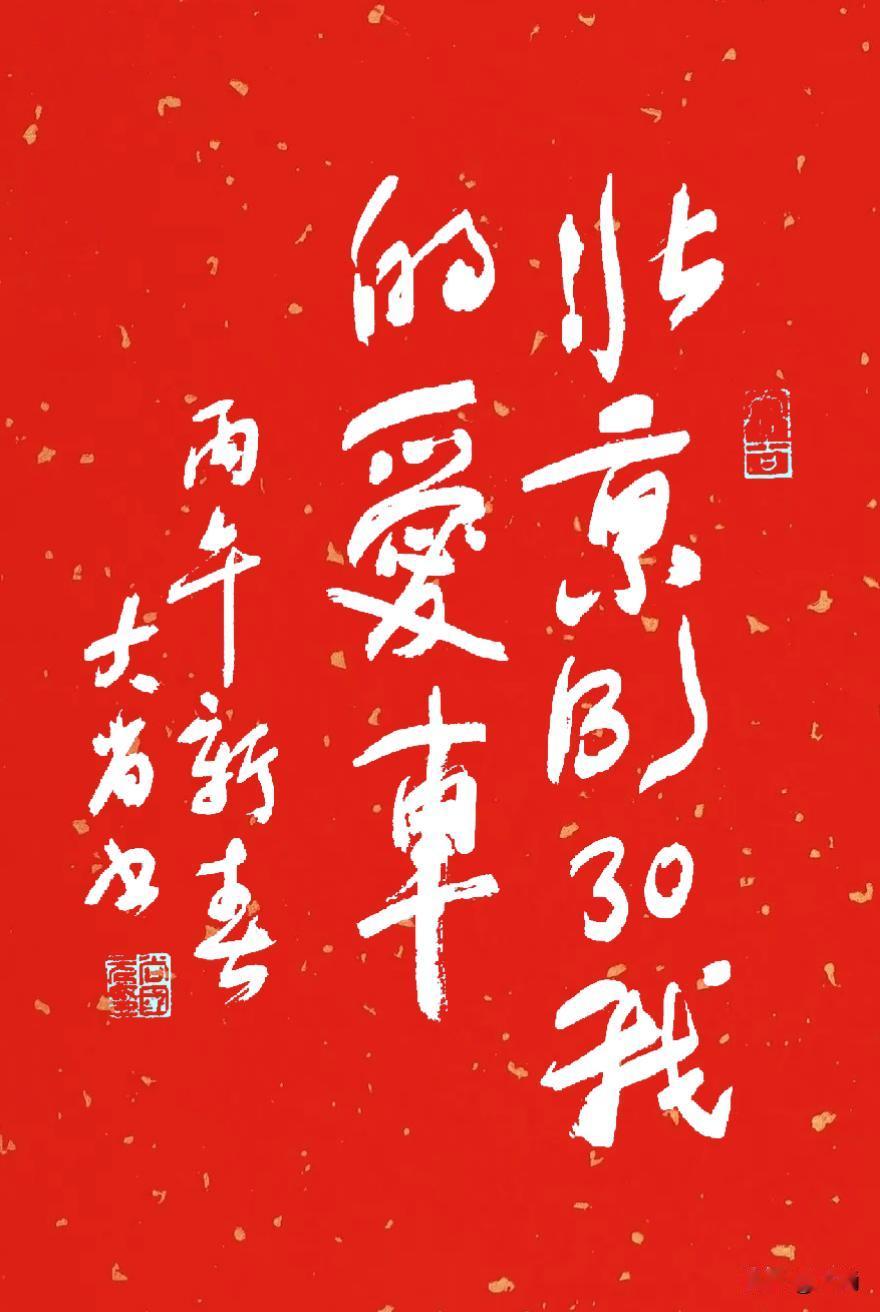 北京的30我
的愛車
丙午新春
大省书